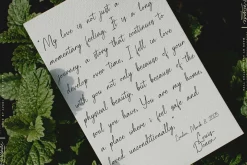 "My love is not just a
momentary feeling. It is a long
journey, a story that continues to
develop over time. I fell in love
with you not only because of your
physical beauty but because of the
soul you have. You are my home,
a place where i feel safe and
loved unconditionally."